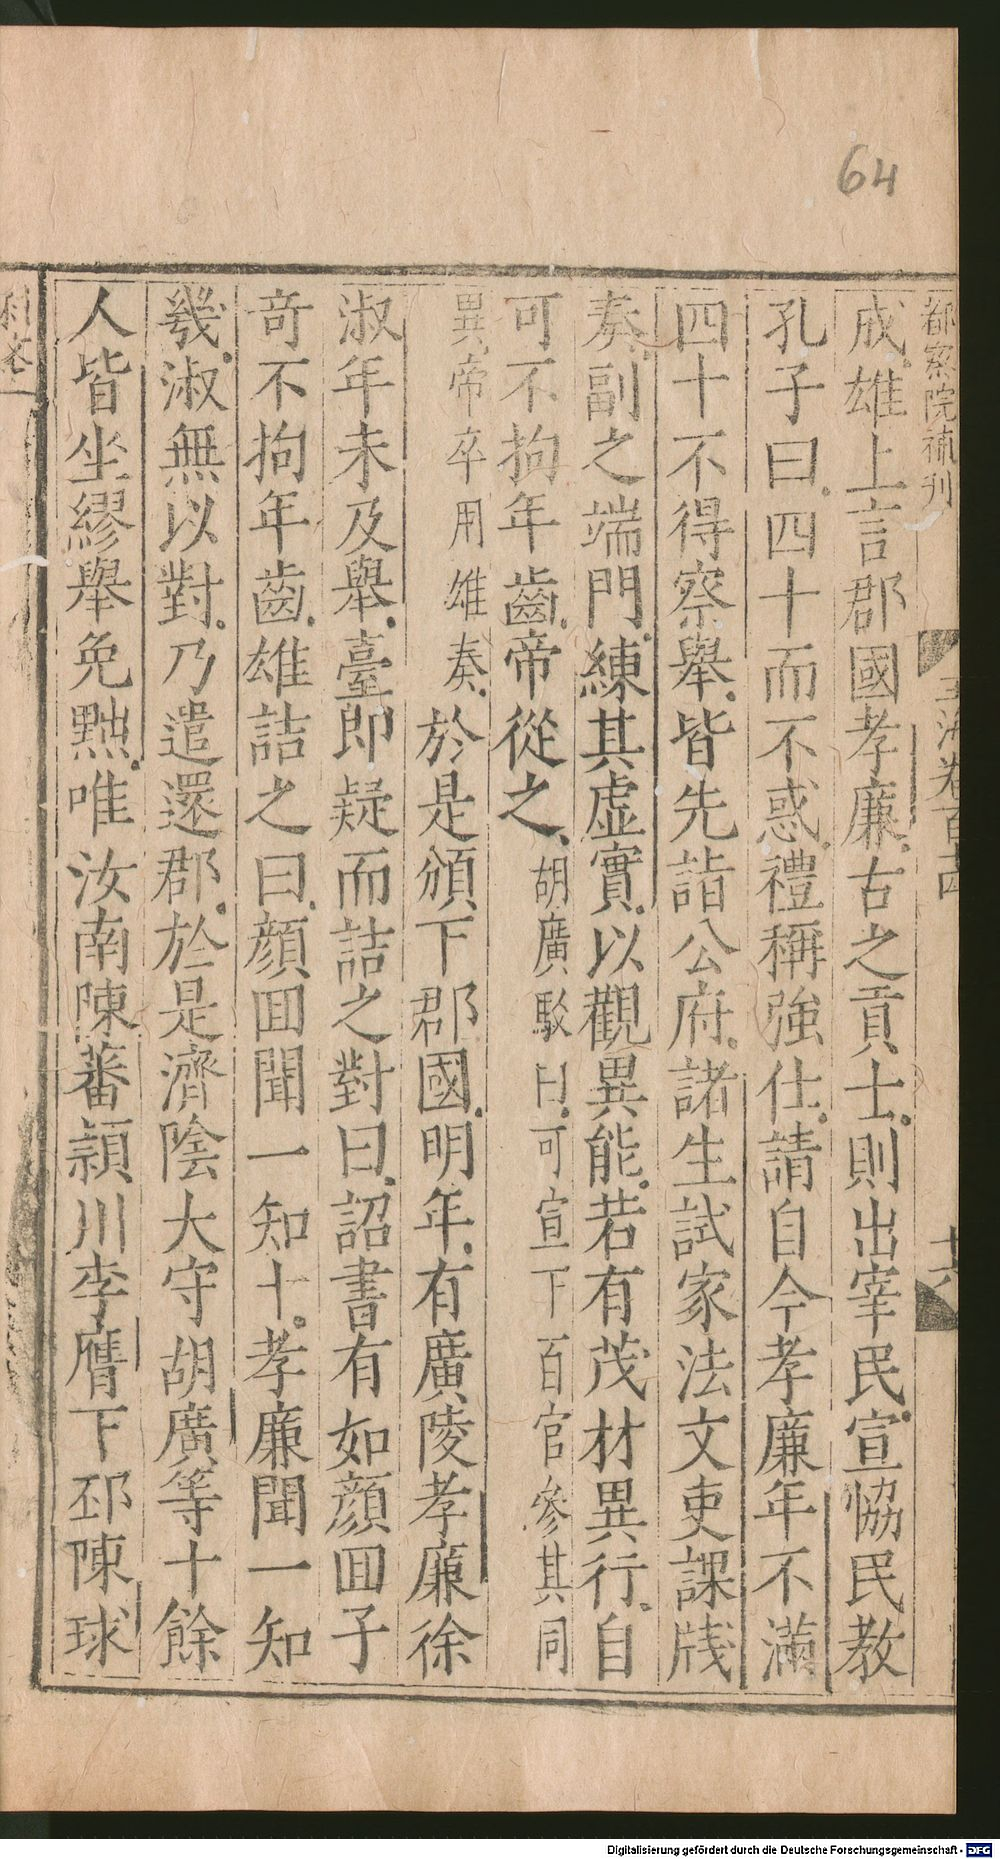 64
都察院補刊
玉海卷百十四
十六
成雄上言郡國孝廉古之貢士則出宰民宣恊民教
孔子曰四十而不惑禮稱強仕請自今孝廉年不滿
四十不得察舉皆先詣公府諸生試家法文吏課牋
奏副之端門練其虛實以觀異能若有茂材異行自
可不拘年齒帝從之胡廣駁曰可宣下百官參其同
異帝卒用雄奏於是頒下郡國明年有廣陵孝廉徐
淑年未及舉臺郎疑而詰之對曰詔書有如顔囬子
竒不拘年齒雄詰之曰顔囬聞一知十孝廉聞一知
㡬淑無以對乃遣還郡於是濟陰大守胡廣等十餘
人皆坐繆舉免黜唯汝南陳蕃潁川李膺下邳陳球
Digitalisierung gefördert durch die Deutsche Forschungsgemeinschaft - DFG